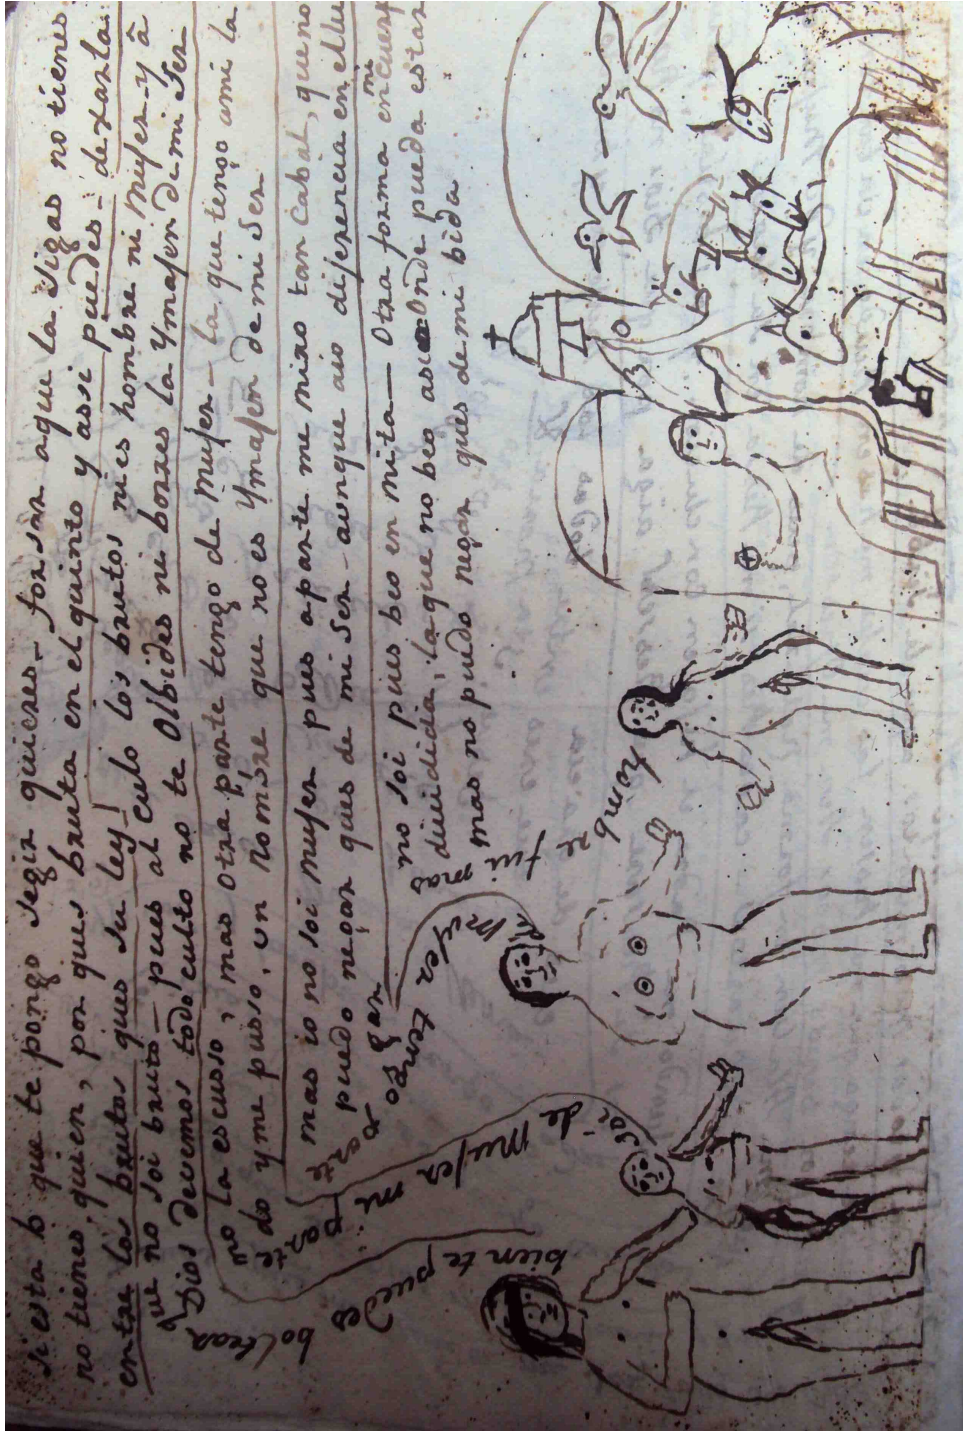 Si esta b que te pongo segir quieres - forsar aque la sigas no tienes
no tienes quien, por ques bruta en el quinto y assi puedes - dexarla.
entre los brutos ques su ley!
que no soi bruto - pues al culo los brutos ni es hombre ni Mujer - y â
Dios devemos todo culto no te Olbides ni borres la Ymajen de mi Ser
no la escuso, mas otra parte tengo de Mujer - la que tengo ami la
do y me puso, un nombre que no es Ymajen de mi Ser
mas io no soi Mujer pues aparte me miro tan Cabal, que no
puedo negar ques de mi Ser - aunque diferencia en ella
no soi pues beo en mita - Otra forma en mi cuerp
diuidida, la que no beo Onde pueda estar
mas no puedo negar ques de mi bida
bien te puedes
boltear
soi de Mujer mi parte
tengo
Mujer
fui mas
hombre